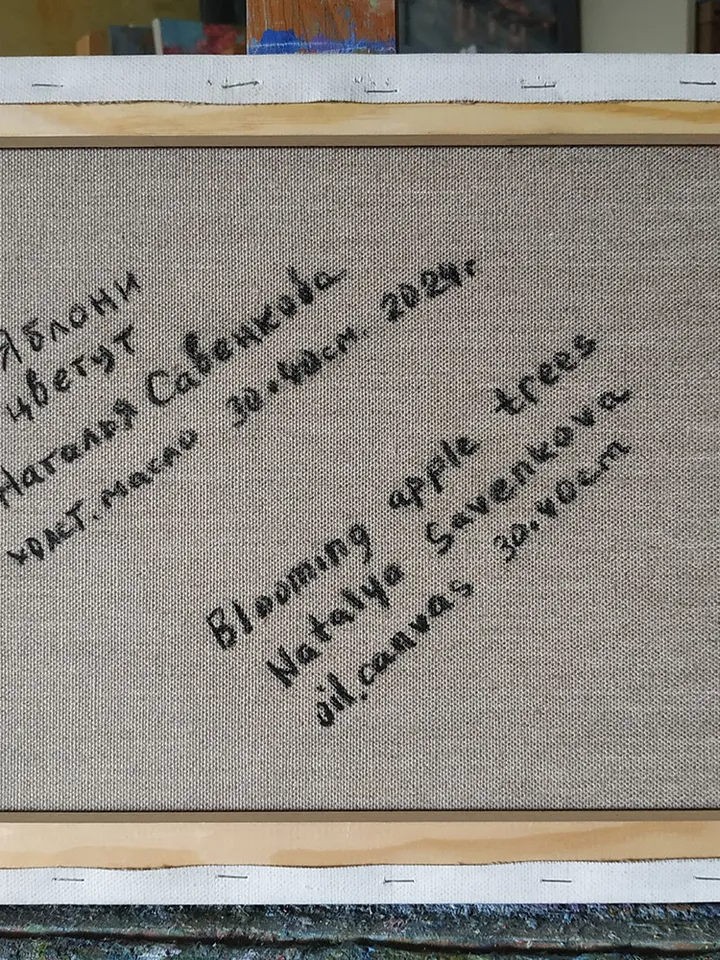 Яблони
цветут
Наталья Савенкова
холст, масло 30•40см. 2024г
Blooming apple trees
Natalya Savenkova
oil, canvas 30•40cm